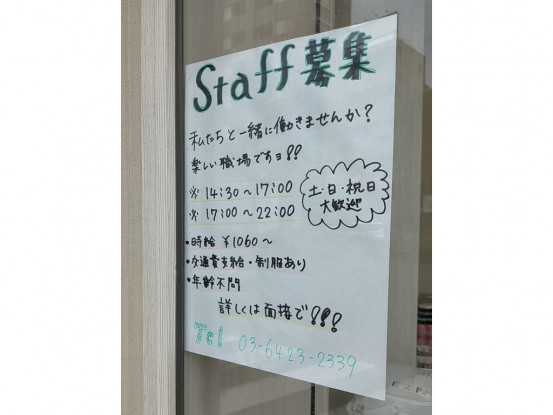 Staff 募集
私たちと一緒に働きませんか?
楽しい職場ですヨ!!
※ 14:30～17:00
※ 17:00～22:00
土・日・祝日
大歓迎
・時給 ¥1060～
・交通費支給・制服あり
・年齢不問
詳しくは面接で!!!
Tel 03-6423-2339